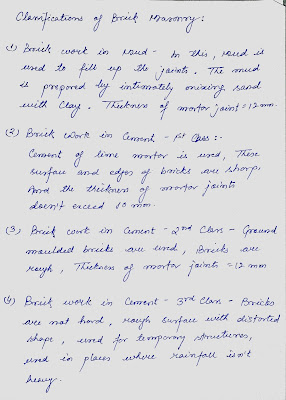 Classifications of Brick Masonry:
(1) Brick work in Mud - In this, mud is
used to fill up the joints. The mud
is prepared by intimately mixing sand
with clay. Thickness of mortar joint = 12 mm.
(2) Brick Work in Cement - 1st Class :-
Cement of lime mortar is used, There
surface and edges of bricks are sharp.
And the thickness of mortar joints
doesn't exceed 10 mm.
(3) Brick work in Cement - 2nd Class - Ground
moulded bricks are used, Bricks are
rough, Thickness of mortar joints = 12 mm
(4) Brick work in Cement - 3rd Class - Bricks
are not hard, rough surface with distorted
shape, used for temporary structures,
used in places where rainfall isn't
heavy.